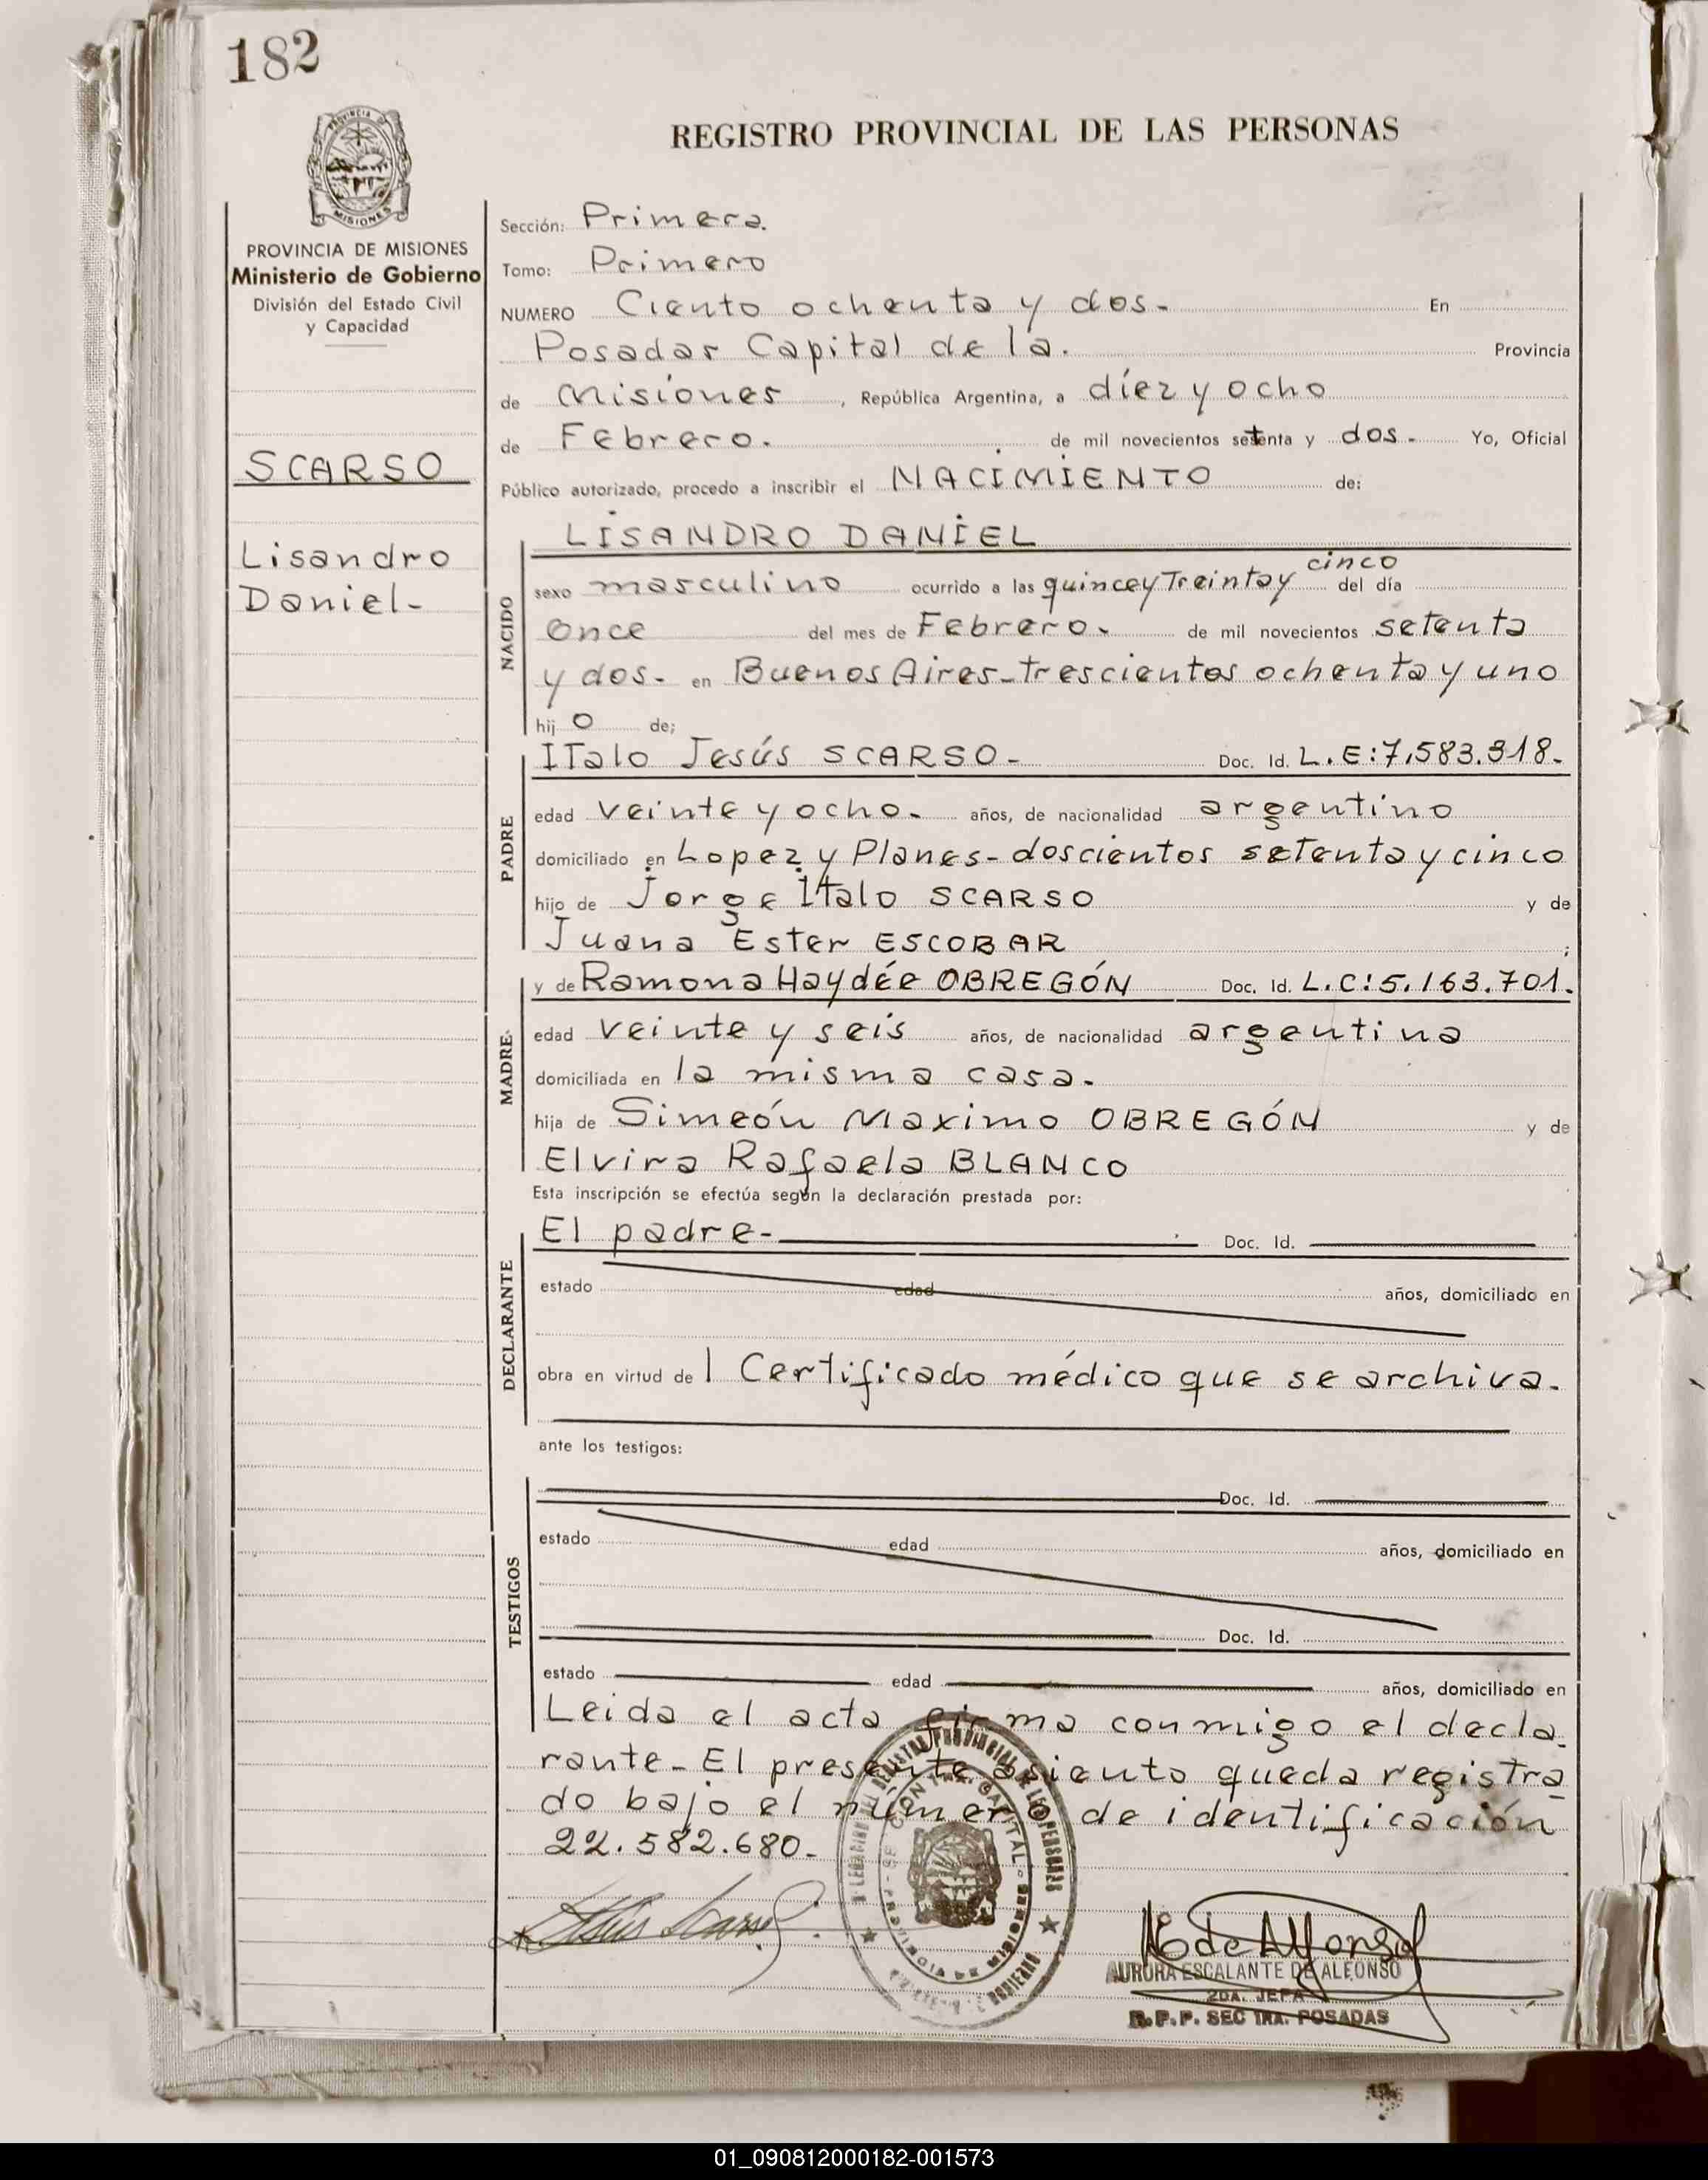 182
PROVINCIA DE MISIONES
REGISTRO PROVINCIAL DE LAS PERSONAS
PROVINCIA DE MISIONES
Ministerio de Gobierno
División del Estado Civil
y Capacidad
SCARSO
Lisandro
Daniel-
Sección: Primera.
Tomo: Primero
NUMERO Ciento ochenta y dos- En
Posadas Capital de la. Provincia
de Misiones, República Argentina, a diez y ocho
de Febrero. de mil novecientos setenta y dos- Yo, Oficial
Público autorizado, procedo a inscribir el NACIMIENTO de:
NACIDO
LISANDRO DANIEL
sexo masculino ocurrido a las quince y Treinta y cinco del día
once del mes de Febrero- de mil novecientos setenta
y dos- en Buenos Aires-trescientos ochenta y uno
hijo de;
PADRE
ITalo Jesús SCARSO- Doc. Id. L.E:7.583.318.
edad veinte y ocho- años, de nacionalidad argentino
domiciliado en Lopez y Planes-doscientos setenta y cinco
hijo de Jorge Italo SCARSO y de
Juana Ester ESCOBAR ;
MADRE
y de Ramona Haydée OBREGÓN Doc. Id. L.C:5.163.701.
edad veinte y seis años, de nacionalidad argentina
domiciliada en la misma casa.
hija de Simeón Maximo OBREGÓN y de
Elvira Rafaela BLANCO
Esta inscripción se efectúa según la declaración prestada por:
DECLARANTE
El padre- Doc. Id.
estado edad años, domiciliado en
obra en virtud del Certificado médico que se archiva.
ante los testigos:
TESTIGOS
Doc. Id.
estado edad años, domiciliado en
Doc. Id.
estado edad años, domiciliado en
Leida el acta firma conmigo el decla-
rante-El presente asiento queda registra-
do bajo el número de identificación
22.582.680-
REGISTRO PROVINCIAL DE LAS PERSONAS
PROVINCIA DE MISIONES
AURORA ESCALANTE DE ALFONSO
2DA. JEFA
R.P.P. SEC 1RA. POSADAS
01_090812000182-001573